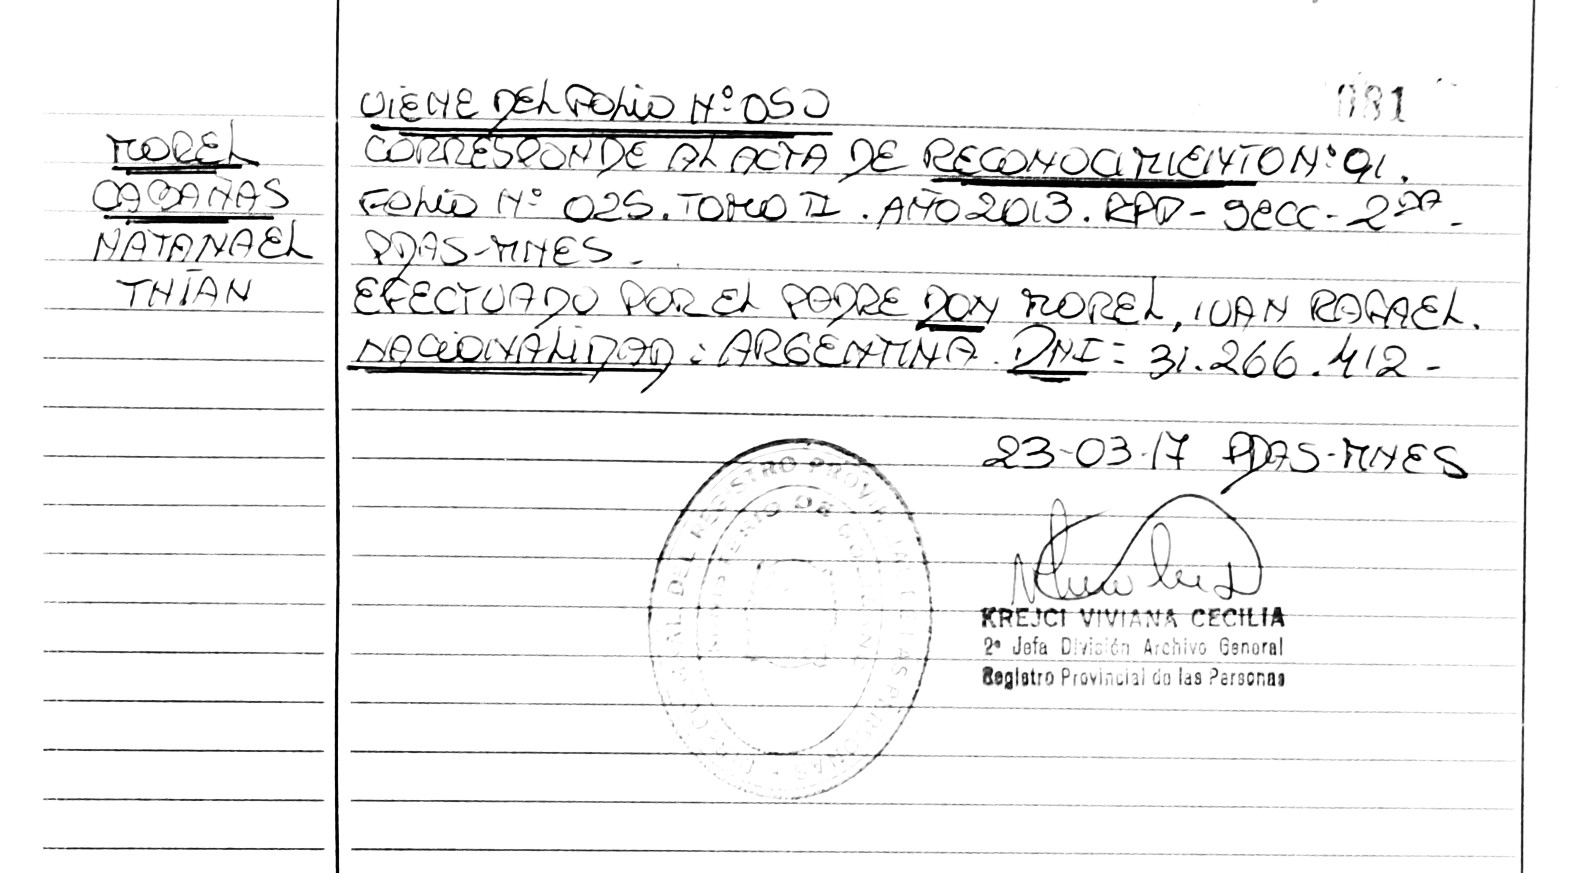 081
VIENE DEL FOLIO N° 050
MOREL
CABAÑAS
NATANAEL
THIAN
CORRESPONDE AL ACTA DE RECONOCIMIENTO N° 91.
FOLIO N° 025. TOMO II. AÑO 2013. RPP - SECC - 2DA -
PDAS-MNES -
EFECTUADO POR EL PADRE DON MOREL, IVAN RAFAEL.
NACIONALIDAD: ARGENTINA. DNI = 31.266.412 -
23-03-17 PDAS-MNES
KREJCI VIVIANA CECILIA
2ª Jefa División Archivo General
Registro Provincial de las Personas
DEL REGISTRO PROVINCIAL DE LAS PERSONAS
MINISTERIO DE GOBIERNO